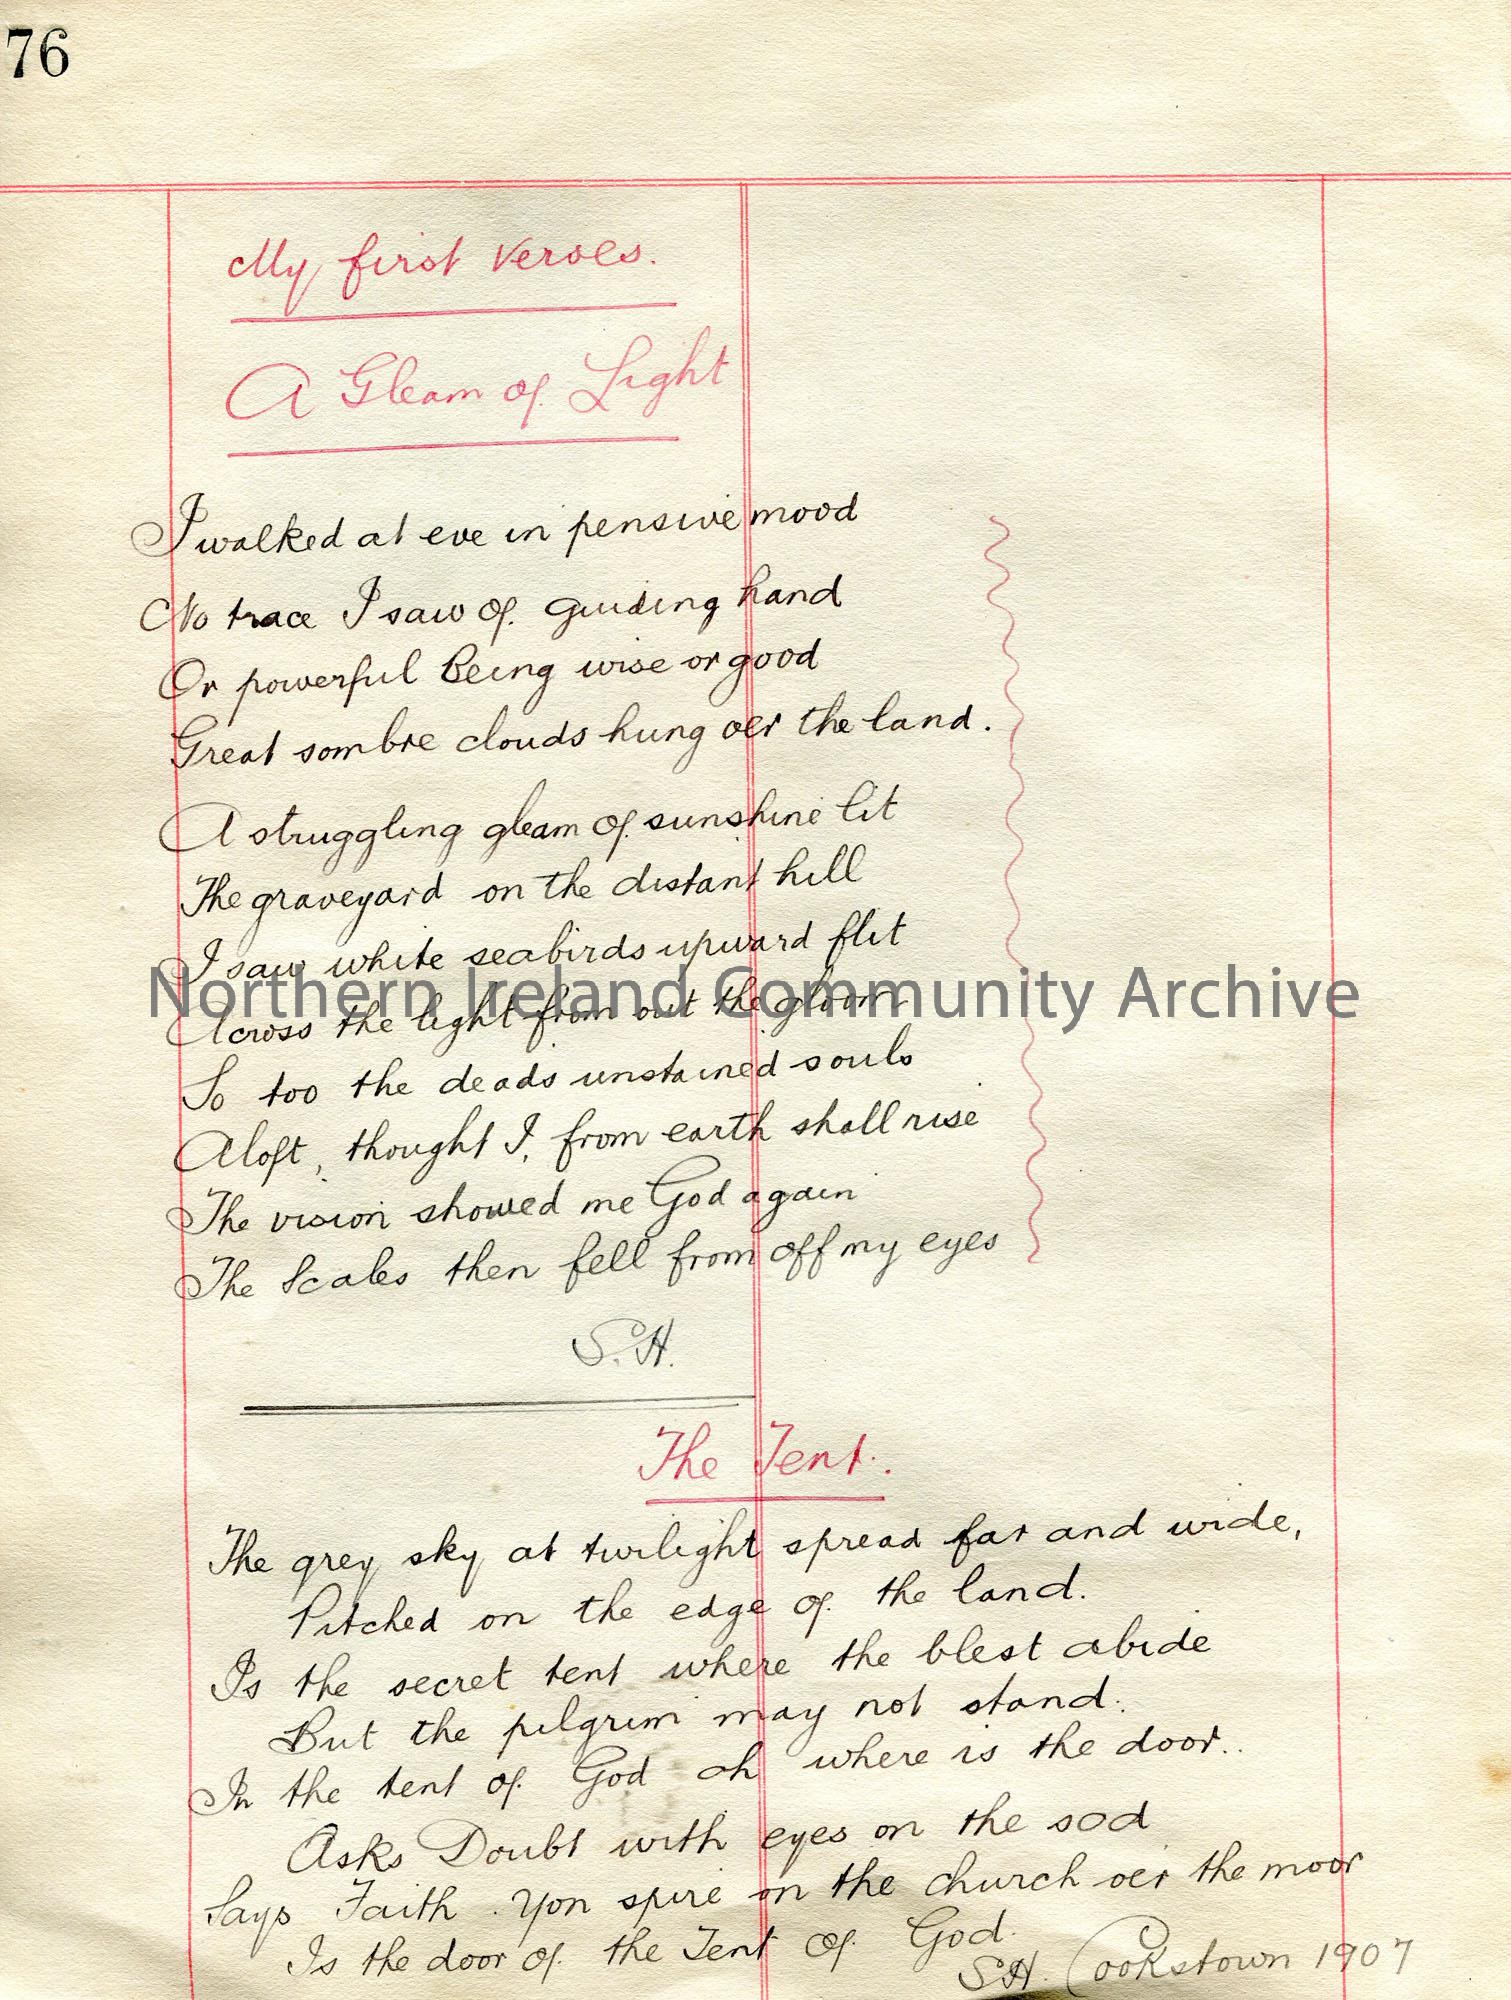 76
My first verses.
A Gleam of Light
I walked at eve in pensive mood
No trace I saw of guiding hand
Or powerful Being wise or good
Great sombre clouds hung oer the land.
A struggling gleam of sunshine lit
The graveyard on the distant hill
I saw white seabirds upward flit
Northern Ireland Community Archive
Across the light from out the gloom.
So too the deads unstained souls
Aloft, thought I, from earth shall rise
The vision showed me God again
The Scales then fell from off my eyes
S.H.
The Tent.
The grey sky at twilight spread far and wide,
Pitched on the edge of the land.
Is the secret tent where the blest abide
But the pilgrim may not stand.
In the tent of God oh where is the door..
Asks Doubt with eyes on the sod
Says Faith. Yon spire on the church oer the moor
Is the door of the Tent of God.
S.H. Cookstown 1907